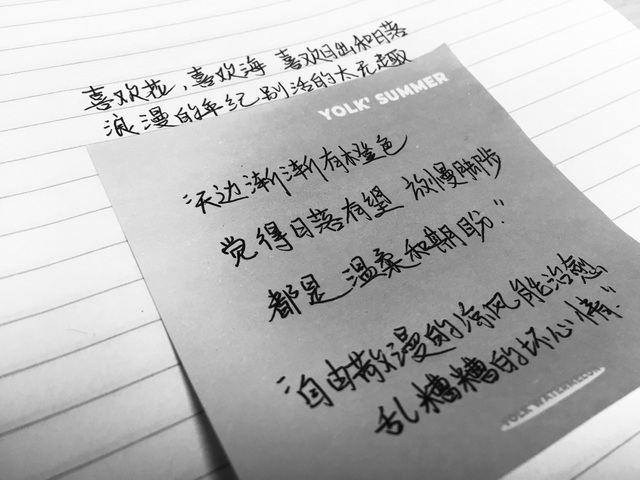 喜欢花,喜欢海 喜欢日出和日落
浪漫的年纪别活的太无趣
YOLK' SUMMER
"天边渐渐有橙色
觉得日落有望 放慢脚步
都是温柔和期盼"
"自由散漫的凉风能治愈
乱糟糟的坏心情"
YOLK WATERMELON